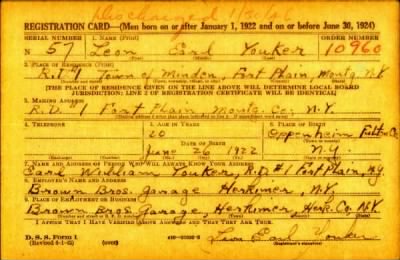 REGISTRATION CARD—(Men born on or after January 1, 1922 and on or before June 30, 1924)
SERIAL NUMBER 1. NAME (Print) ORDER NUMBER
N 57 Leon Earl Youker 10960
2. PLACE OF RESIDENCE (Print)
R.D.#1 Town of Minden, Fort Plain, Montg. N.Y.
[THE PLACE OF RESIDENCE GIVEN ON THE LINE ABOVE WILL DETERMINE LOCAL BOARD
JURISDICTION; LINE 2 OF REGISTRATION CERTIFICATE WILL BE IDENTICAL]
3. MAILING ADDRESS
R.D.#1 Fort Plain Montg. Co. N.Y.
4. TELEPHONE 5. AGE IN YEARS 6. PLACE OF BIRTH
20 Oppenheim Fulton Co.
DATE OF BIRTH
June 26 1922 N.Y.
7. NAME AND ADDRESS OF PERSON WHO WILL ALWAYS KNOW YOUR ADDRESS
Earl William Youker, R.D.#1 Fort Plain, N.Y.
8. EMPLOYER'S NAME AND ADDRESS
Brown Bros. Garage Herkimer, N.Y.
9. PLACE OF EMPLOYMENT OR BUSINESS
Brown Bros. Garage, Herkimer, Herk. Co. N.Y.
I AFFIRM THAT I HAVE VERIFIED ABOVE ANSWERS AND THAT THEY ARE TRUE.
D. S. S. Form 1
Leon Earl Youker